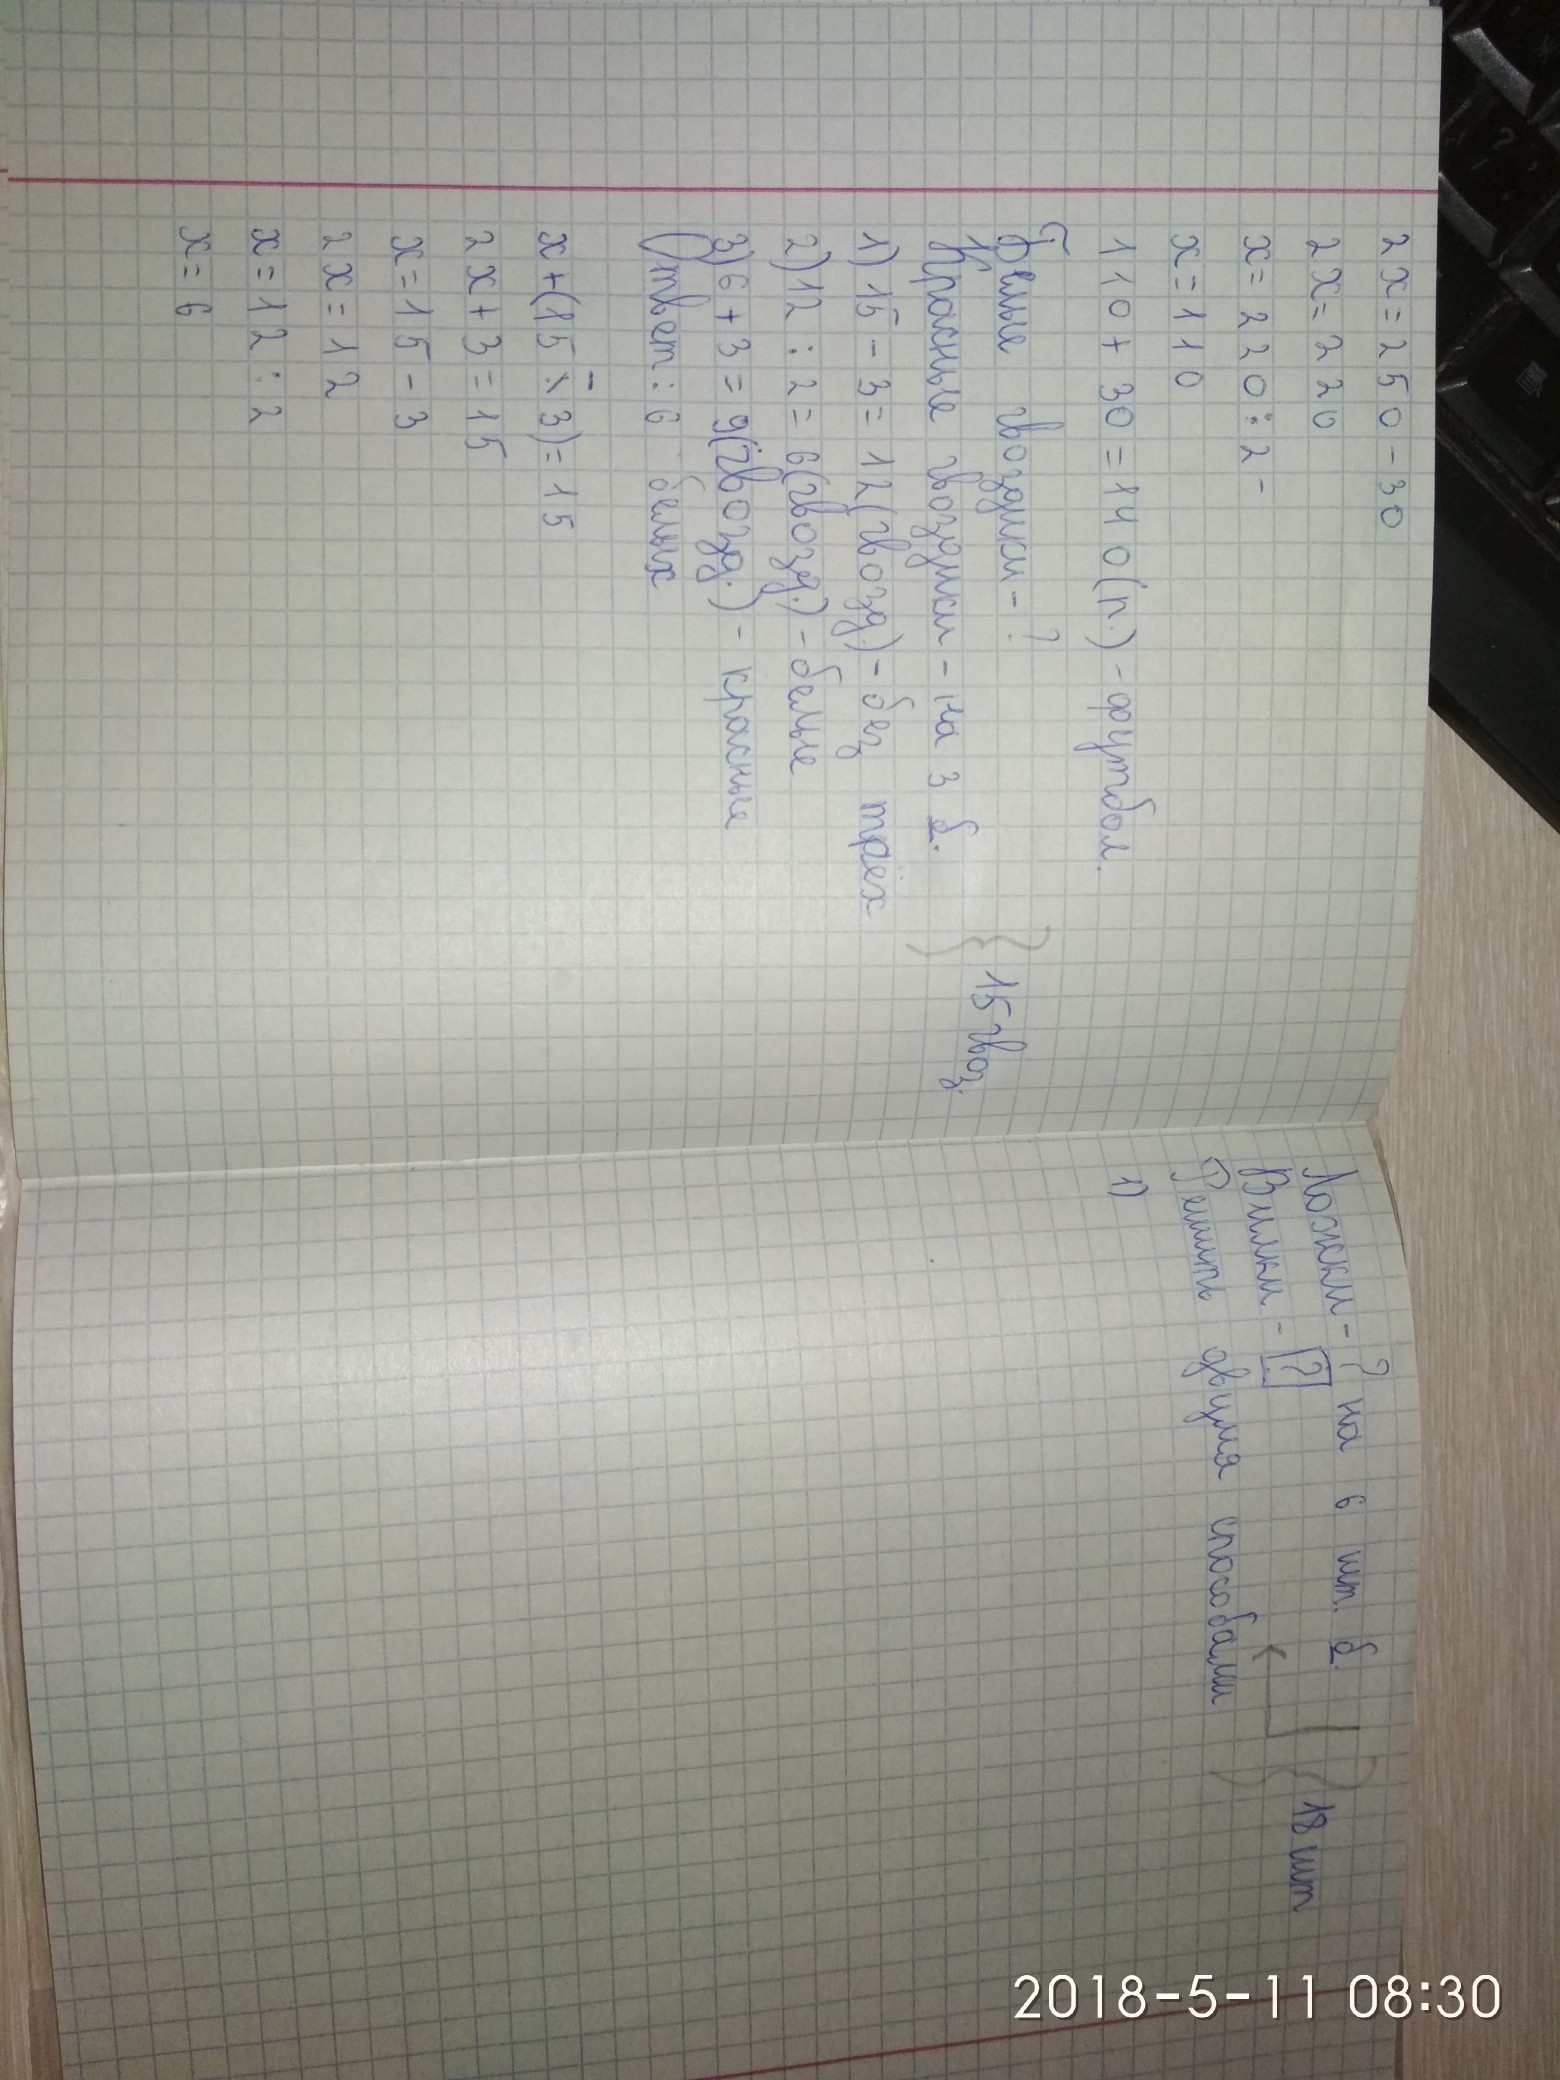 2x=250-30
2x=220
x=220:2-
x=110
110+30=140(п.)-футбол.
Белые гвоздики-?
Красные гвоздики-на 3 б.
}15гвоз.
1)15-3=12(гвозд.)-без трёх
2)12:2=6(гвозд.)-белые
3)6+3=9(гвозд.)-красные
Ответ:6 белых
2x+3=15
x=15-3
2x=12
x=12:2
x=6
Ложки-? на 6 шт. б.
Вилки-?
}18шт
Решить двумя способами
1)
2018-5-11 08:30